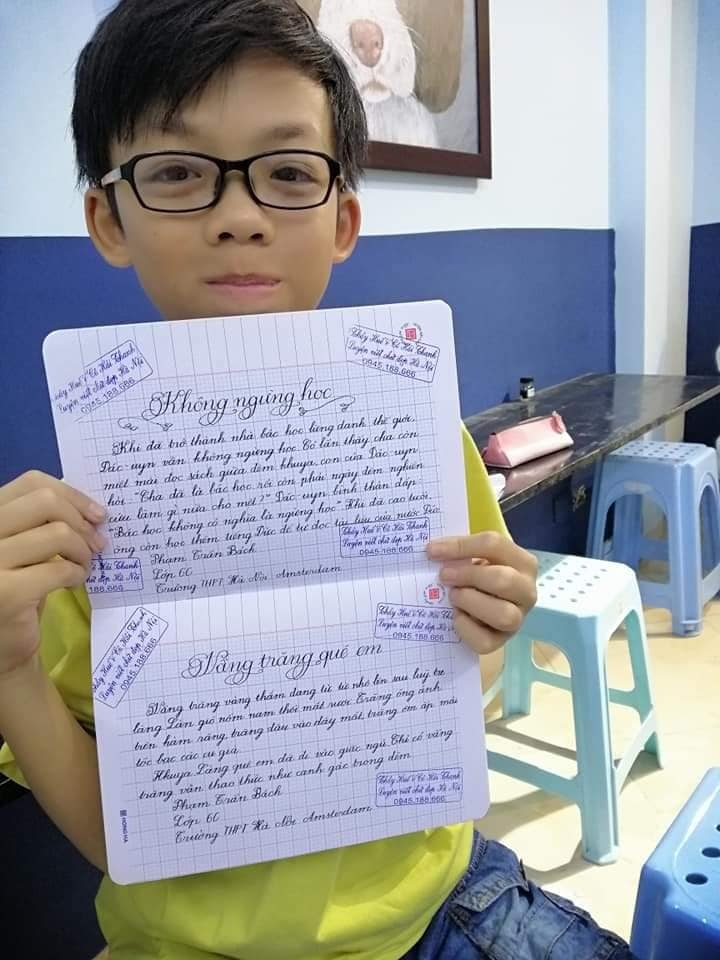 Thầy Huế & Cô Hải Thanh
Luyện viết chữ đẹp Hà Nội
0945.188.666
Thầy Huế & Cô Hải Thanh
Luyện viết chữ đẹp Hà Nội
0945.188.666
Không ngừng học
Khi đã trở thành nhà bác học lừng danh thế giới,
Đác-uyn vẫn không ngừng học. Có lần thấy cha còn
miệt mài đọc sách giữa đêm khuya, con của Đác-uyn
hỏi: "Cha đã là bác học rồi còn phải ngày đêm nghiên
cứu làm gì nữa cho mệt?" Đác-uyn bình thản đáp:
"Bác học không có nghĩa là ngừng học". Khi đã cao tuổi,
ông còn học thêm tiếng Đức để tự đọc tài liệu của nước Đức.
Phạm Trần Bách
Lớp 6C
Trường THPT Hà Nội Amsterdam
Hải Thanh
chữ đẹp Hà Nội
188.666
Thầy Huế & Cô Hải Thanh
Luyện viết chữ đẹp Hà Nội
0945.188.666
Thầy Huế & Cô Hải Thanh
Luyện viết chữ đẹp Hà Nội
0945.188.666
Thầy Huế & Cô Hải
Luyện viết chữ đẹp Hà
0945.188.666
Vầng trăng quê em
Vầng trăng vàng thắm đang từ từ nhô lên sau luỹ tre
làng. Làn gió nồm nam thổi mát rượi. Trăng óng ánh
trên hàm răng, trăng đậu vào đáy mắt, trăng ôm ấp mái
tóc bạc các cụ già.
Khuya. Làng quê em đã đi vào giấc ngủ. Chỉ có vầng
trăng vẫn thao thức như canh gác trong đêm.
Phạm Trần Bách
Lớp 6C
Trường THPT Hà Nội Amsterdam
Thầy Huế & Cô Hải Thanh
Luyện viết chữ đẹp Hà Nội
0945.188.666
HONG HA